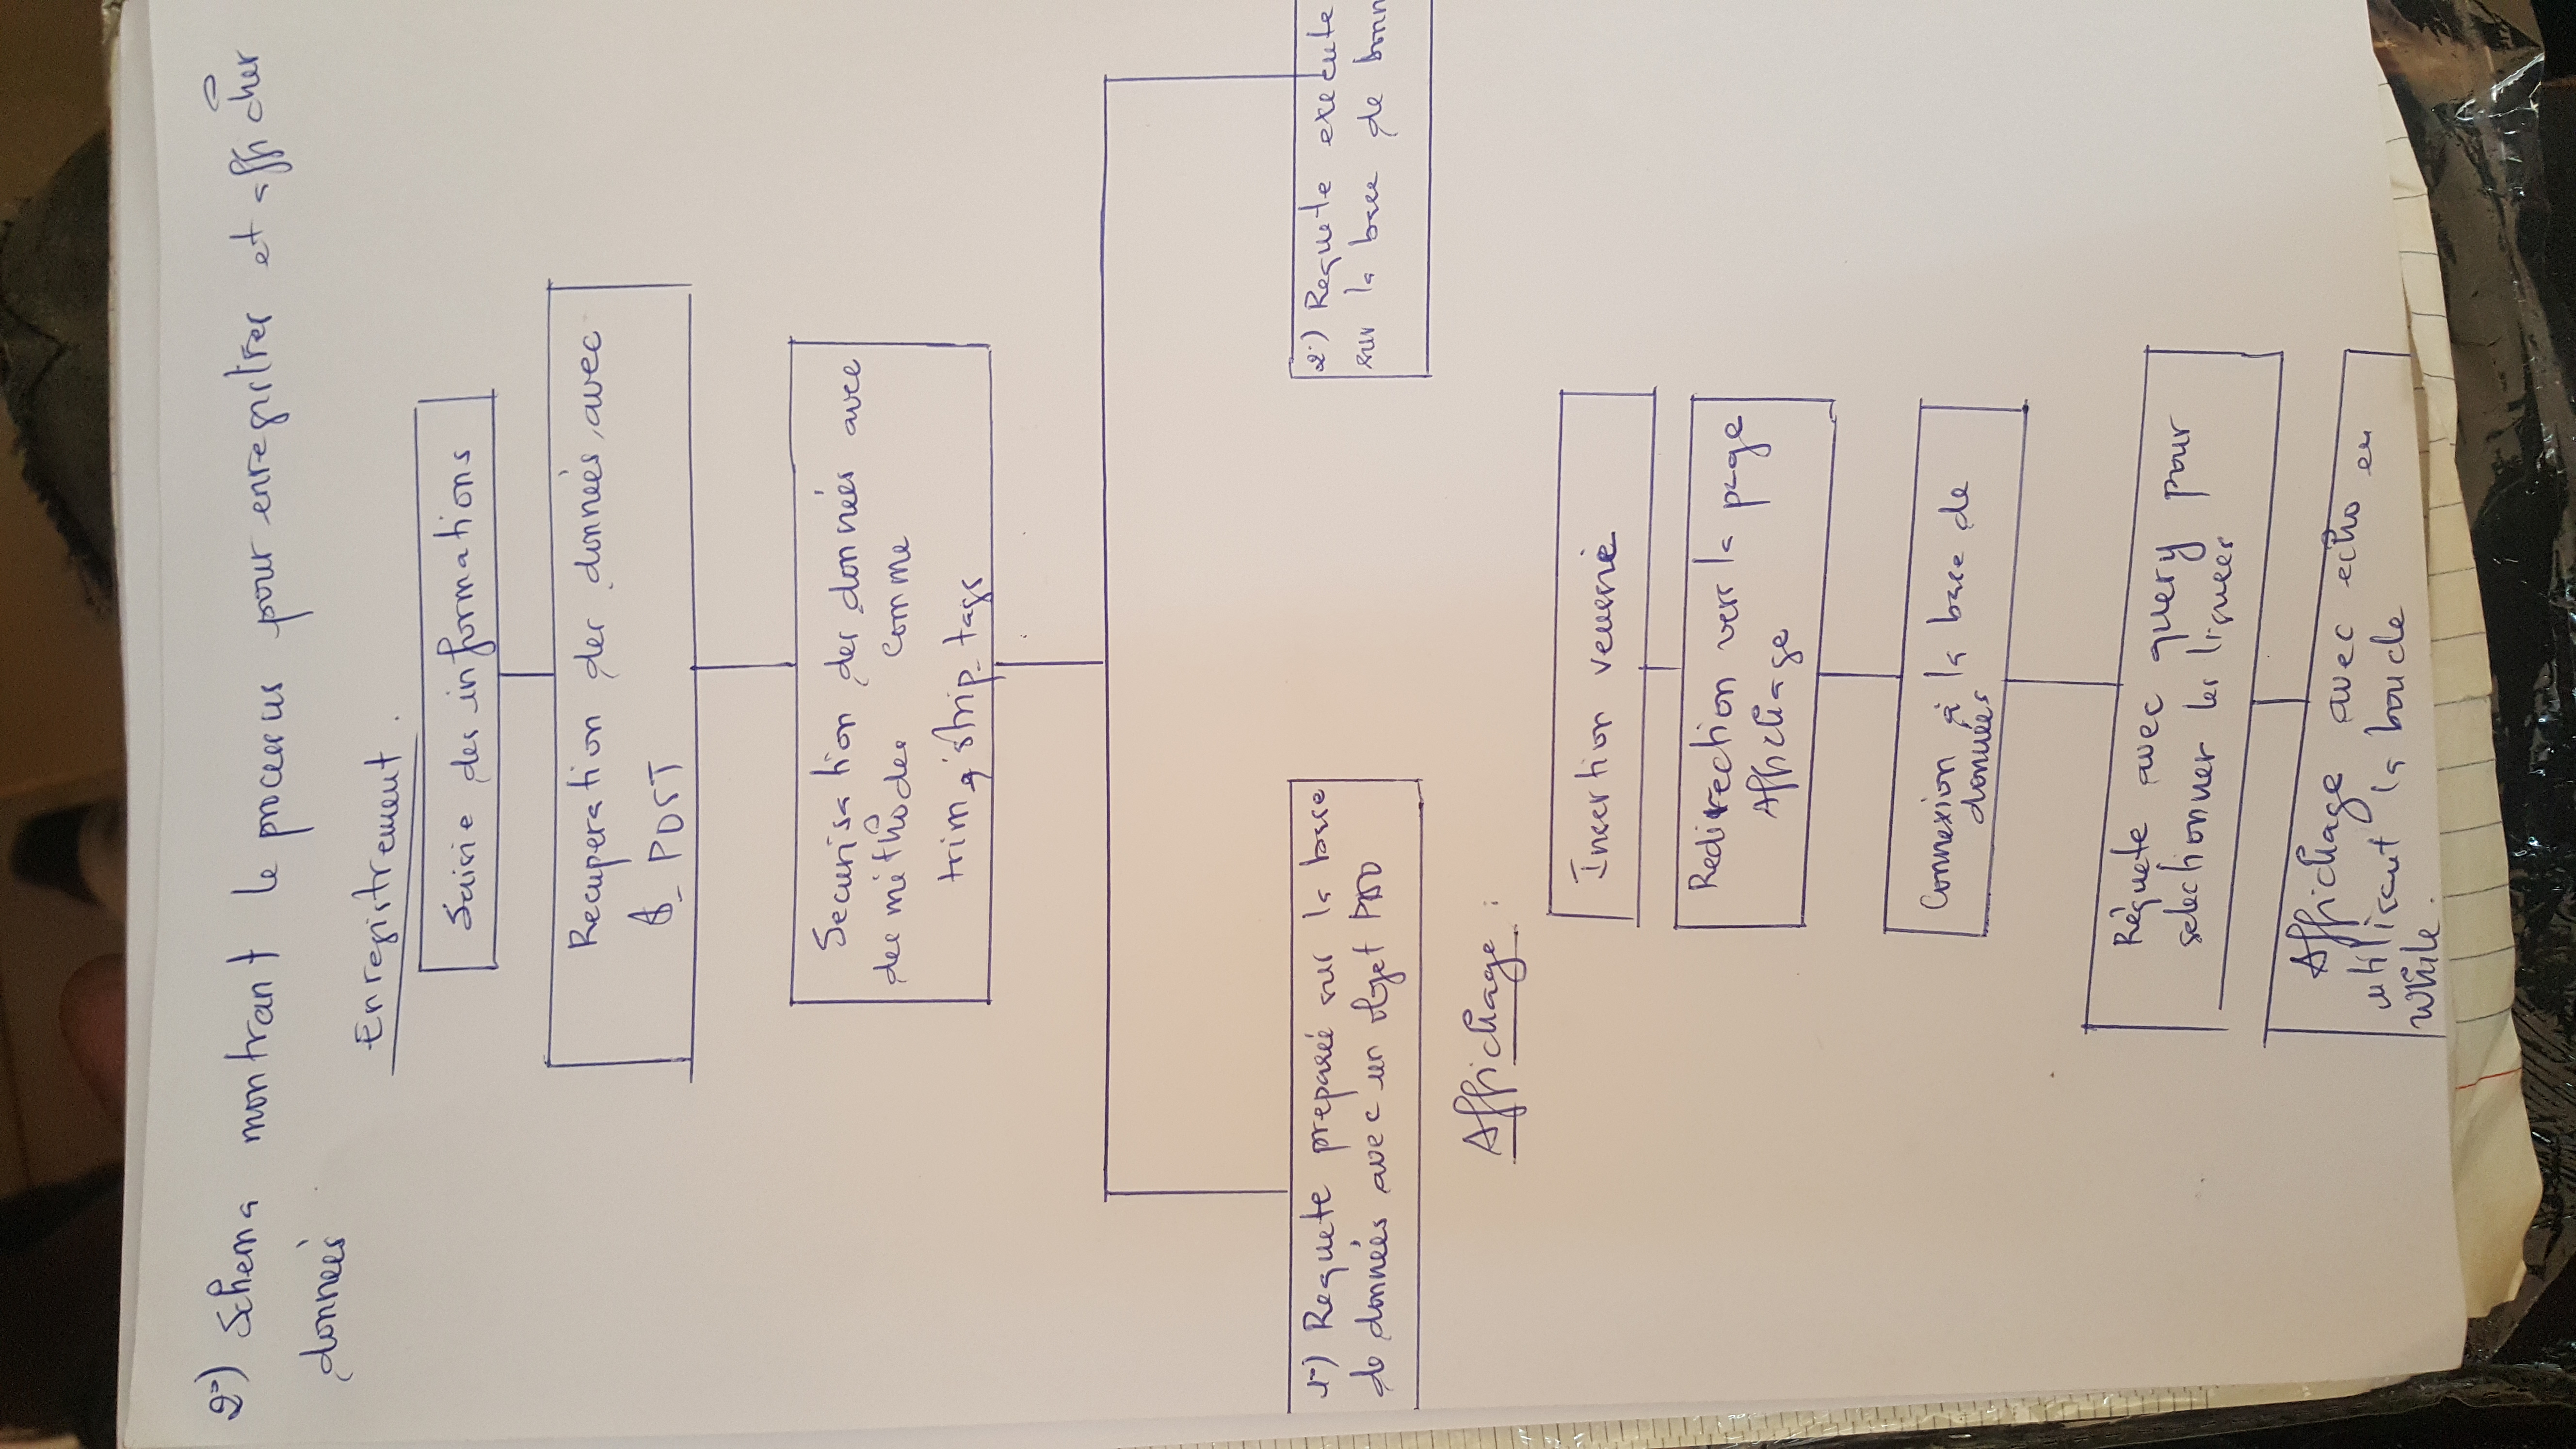 2°) Schema montrant le processus pour enregistrer et afficher
donneés
Enregistrement.
Saisie des informations
Recuperation des donneés avec
$_POST
Securisation des donneés avec
des méthodes comme
trim, strip_tags
1°) Requete preparée sur la base
de donneés avec un objet PDO
2°) Requete execute
sur la base de donn
Affichage :
Insertion reussie
Redirection vers la page
Affichage
Connexion à la base de
données
Requete avec query pour
selectionner les lignees
Affichage avec echo en
utilisant la boucle
while.